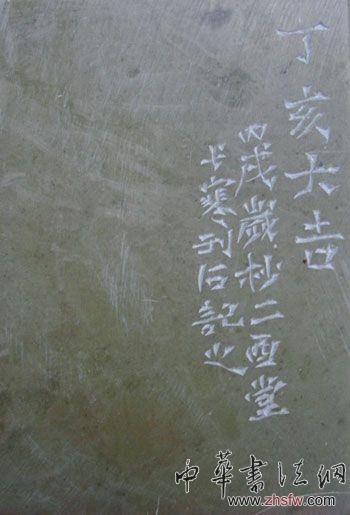 丁亥大吉
丙戌歲杪二酉堂
寒刊石記之
中華書法網
www.zhsfw.com